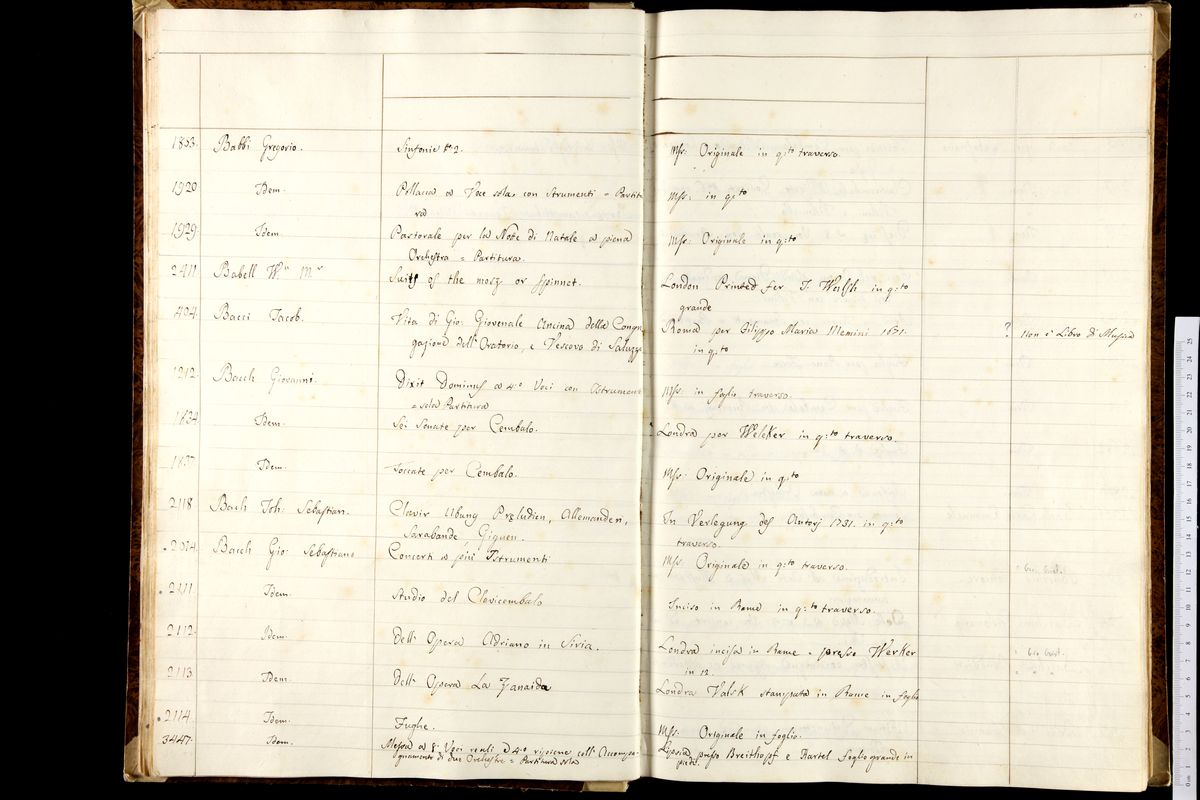 1853. Babbi Gregorio. Sinfonie No 2. Mss. Originale in q:to traverso.
1920 Idem. Pollacca a Voce sola, con Strumenti = Partitu
ra Mss: in q:to
1929. Idem. Pastorale per la Notte di Natale a piena
Orchestra = Partitura. Mss: Originale in q:to
2411 Babell Wm Mr Suits of the most or Spinnet. London Printed for J. Walsh in q:to
grande
494. Bacci Jacob. Vita di Gio: Giovenale Ancina della Congre
gazione dell'Oratorio, e Vescovo di Saluzzo Roma per Filippo Maria 1671.
in q:to ? Non è Libro di Musica
1212 Bach Giovanni. Dixit Dominus a 4:o Voci con Istrumenti
= sola Partitura Mss. in foglio traverso.
1834. Idem. Sei Sonate per Cembalo. Londra per Welcker in q:to traverso.
1837. Idem. Toccate per Cembalo. Mss: Originale in q:to
2118 Bach Joh: Sebastian. Clavir Ubung Præludien, Allemanden,
Sarabande, Giquen. In Verlegung des Autorj 1731. in q:to
traverso.
2074. Bach Gio: Sebastiano Concerti a più Istrumenti Mss. Originale in q:to traverso.
2111 Idem. Studio del Clavicembalo Inciso in Rame in q:to traverso.
2112. Idem. Dell' Opera Adriano in Siria. Londra incisa in Rame = presso Werker
in 12.
2113 Idem. Dell' Opera La Zanaida Londra Valsk stampata in Rame in foglio
2114. Idem. Fughe. Mss. Originale in foglio.
3447. Idem. Messa a 8:o Voci reali e 4:o ripiene coll' Accompa-
gnamento di due Orchestre = Partitura sola Lipsia presso Breitkopf e Hartel foglio grande in
piedi.